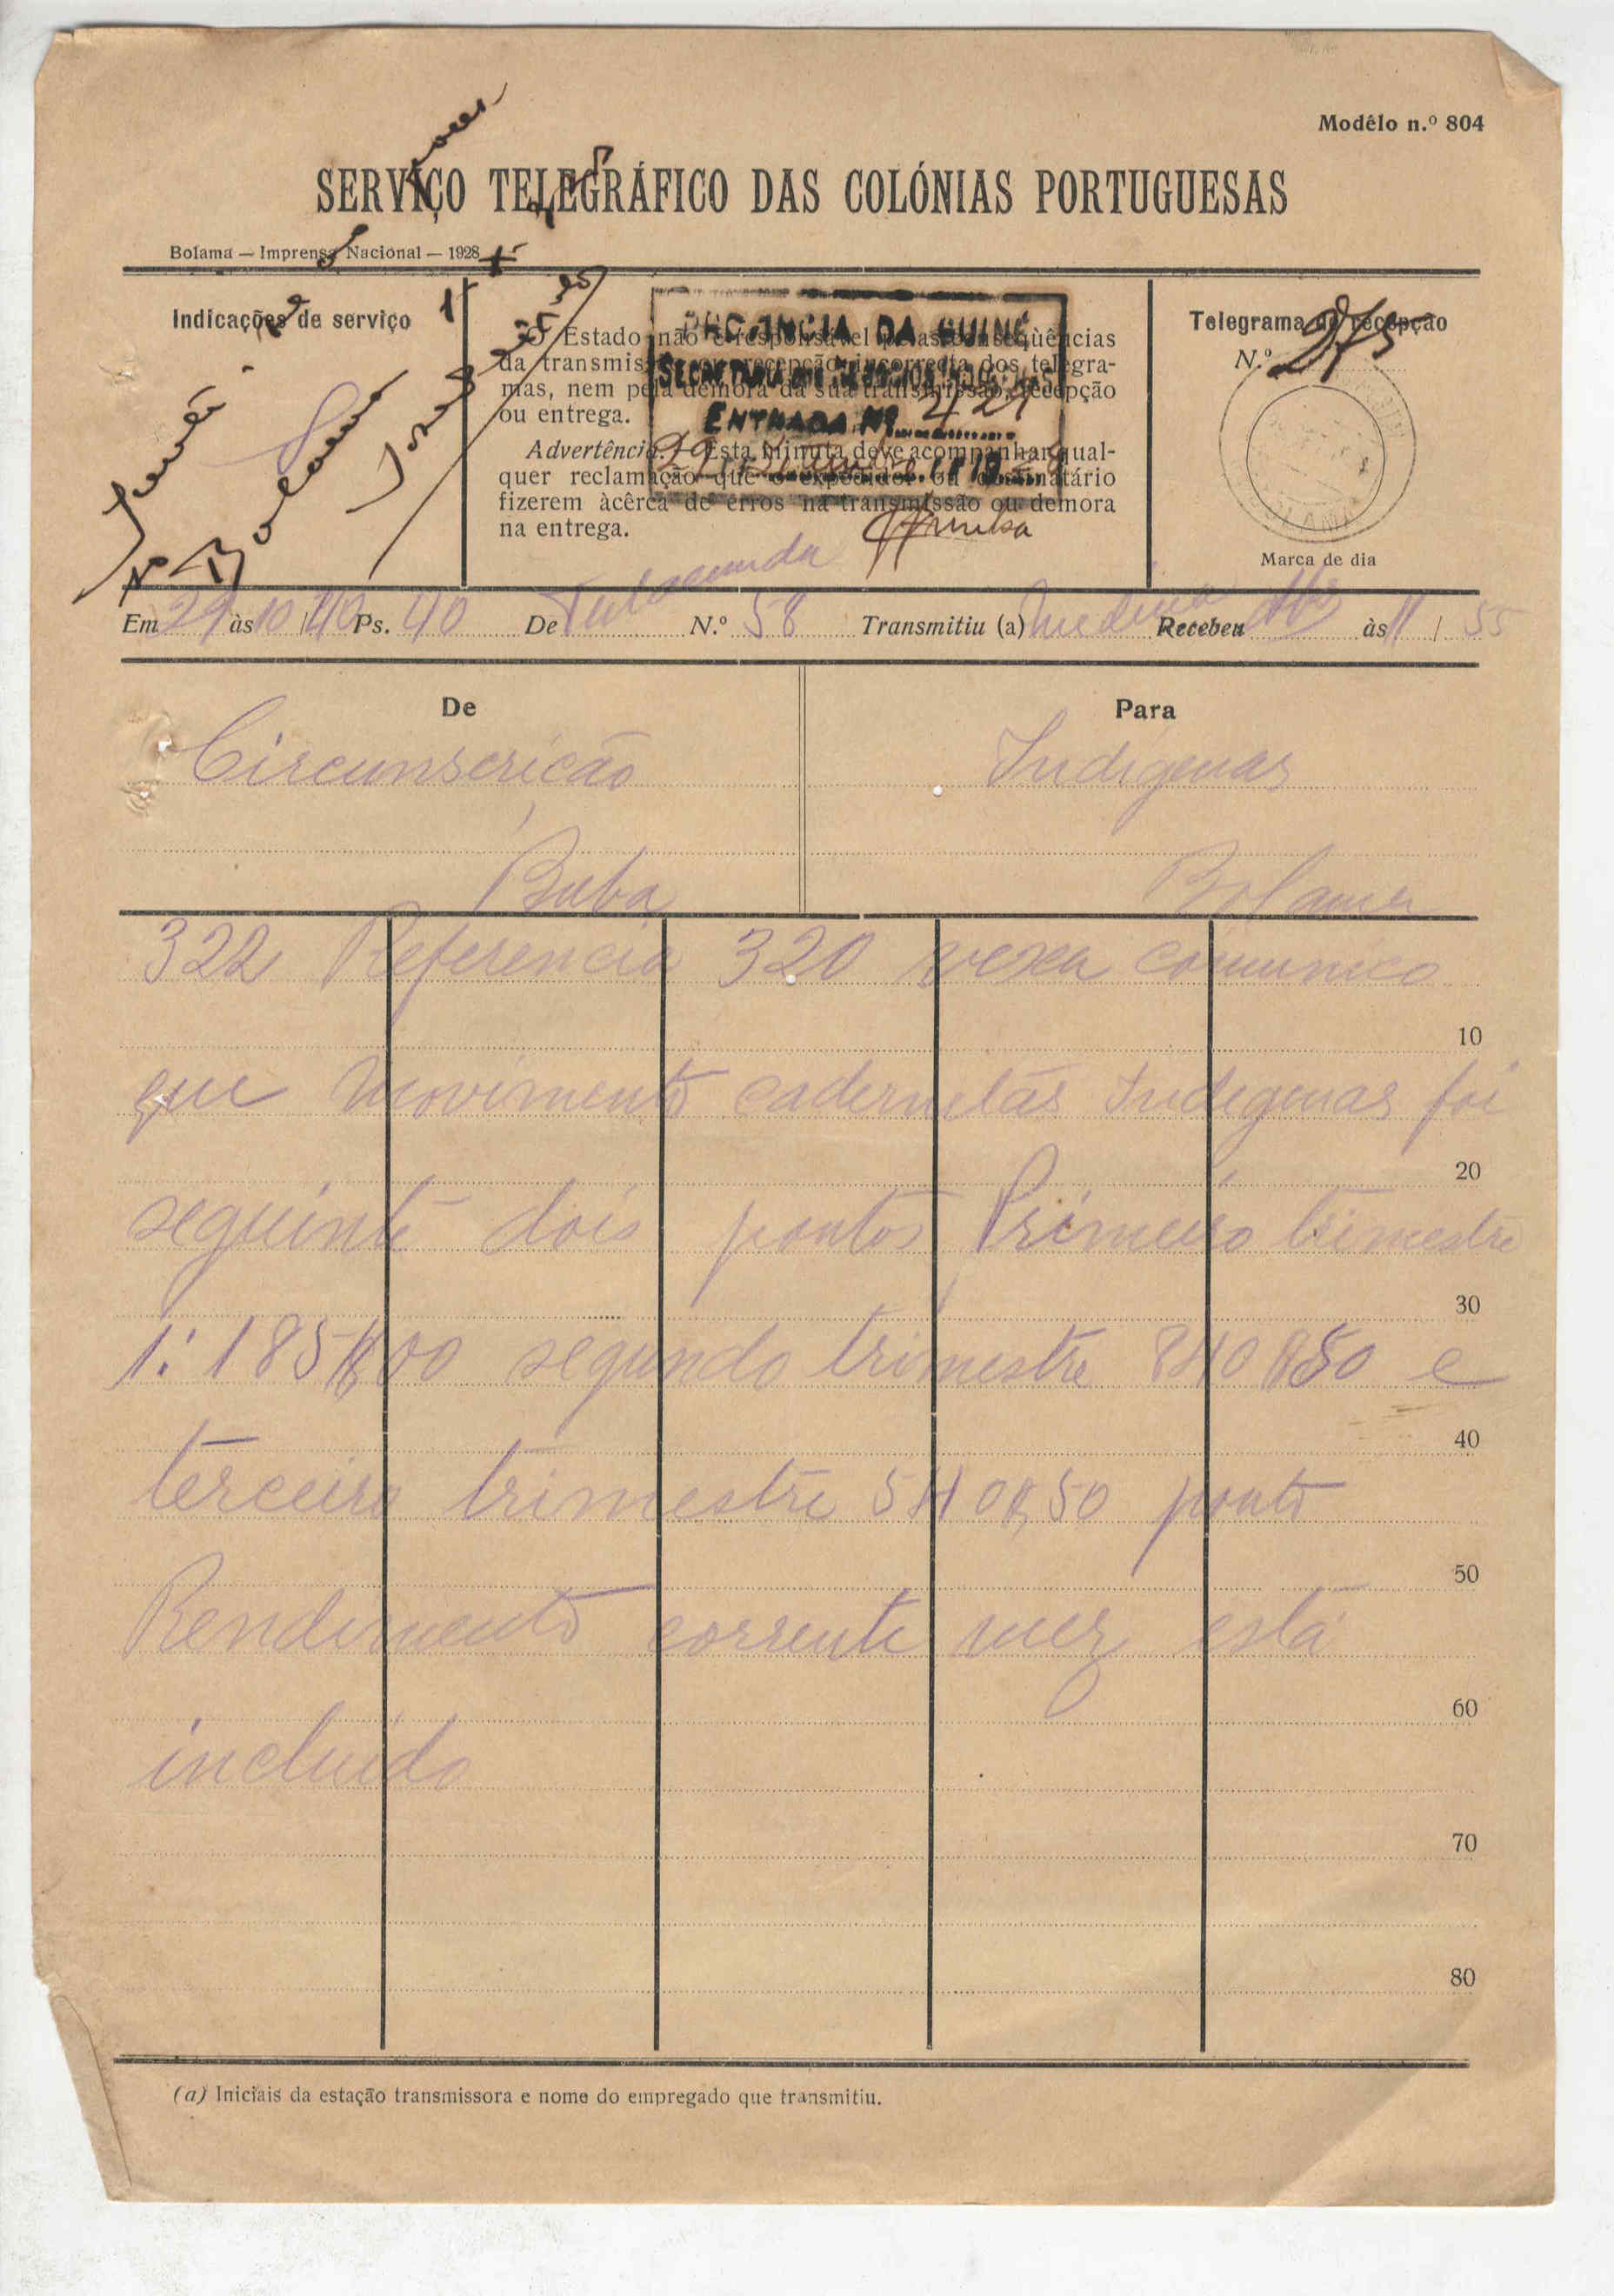 Modêlo n.º 804
SERVIÇO TELEGRÁFICO DAS COLÓNIAS PORTUGUESAS
Bolama — Imprensa Nacional — 1928
Indicações de serviço
O Estado não é responsável pelas conseqüências
da transmissão ou recepção incorrecta dos telegra-
mas, nem pela demora da sua transmissão, recepção
ou entrega.
Advertência.—Esta minuta deve acompanhar qual-
quer reclamação que o expedidor ou destinatário
fizerem àcêrca de erros na transmissão ou demora
na entrega.
PROVINCIA DA GUINÉ
ENTRADA Nº
Telegrama de recepção
N.º 275
BOLAMA
Marca de dia
Em 29 às 10/40 Ps. 40 De Fulacunda N.º 58 Transmitiu (a) Recebeu às 11/55
De
Para
Circunscrição
Indigenas
Buba
Bolama
322 Referencia 320 vexa comunico
10
que movimento cadernetas Indigenas foi
20
seguinte dois pontos Primeiro trimestre
30
1:185$00 segundo trimestre 840$50 e
40
terceiro trimestre 540$50 ponto
50
Rendimento corrente mez está
60
incluido
70
80
(a) Iniciais da estação transmissora e nome do empregado que transmitiu.